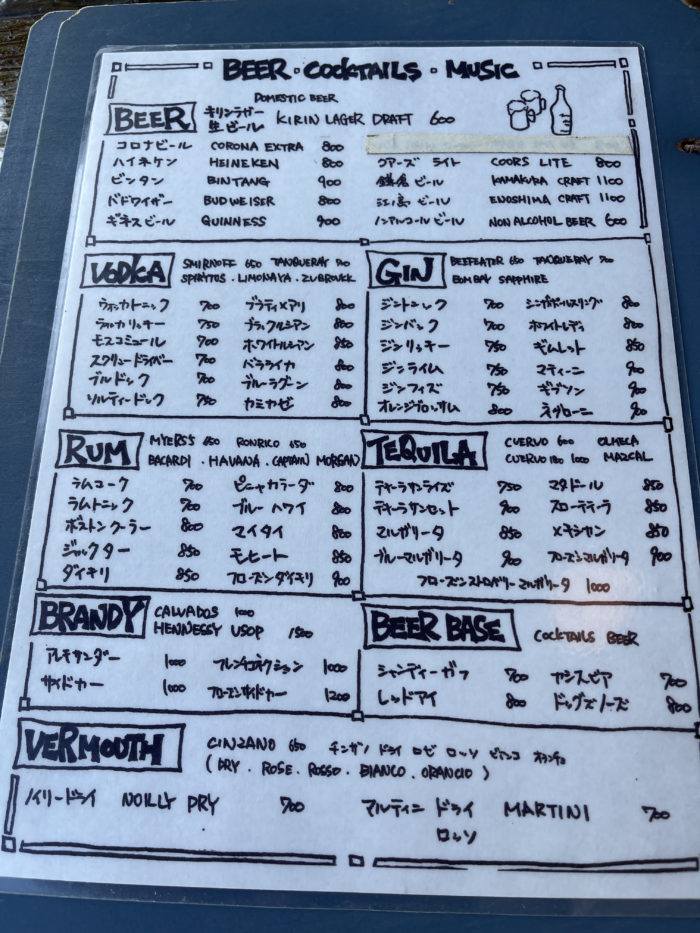 BEER・COCKTAILS・MUSIC
DOMESTIC BEER
BEER キリンラガー 生ビール KIRIN LAGER DRAFT 600
コロナビール CORONA EXTRA 800
ハイネケン HEINEKEN 800
ビンタン BINTANG 900
バドワイザー BUDWEISER 800
ギネスビール GUINNESS 900
クアーズ ライト COORS LITE 800
鎌倉ビール KAMAKURA CRAFT 1100
江ノ島ビール ENOSHIMA CRAFT 1100
ノンアルコールビール NON ALCOHOL BEER 600
VODKA SMIRNOFF 650 TANQUERAY 700
SPIRYTUS . LIMONAYA . ZUBROWCK
ウォッカトニック 700 ブラディメアリ 800
ウォッカリッキー 750 ブラックルシアン 800
モスコミュール 700 ホワイトルシアン 850
スクリュードライバー 700 バラライカ 800
ブルドック 700 ブルーラグーン 800
ソルティードック 750 カミカゼ 800
GIN BEEFEATER 650 TANQUERAY 700
BOMBAY SAPPHIRE
ジントニック 700 シンガポールスリング 800
ジンバック 700 ホワイトレディ 800
ジンリッキー 750 ギムレット 850
ジンライム 750 マティーニ 900
ジンフィズ 750 ギブソン 900
オレンジブロッサム 800 ネグローニ 900
RUM MYERS'S 650 RONRICO 650
BACARDI . HAVANA . CAPTAIN MORGAN
ラムコーク 700 ピニャカラーダ 800
ラムトニック 700 ブルーハワイ 800
ボストンクーラー 800 マイタイ 850
ジャックター 850 モヒート 850
ダイキリ 850 フローズンダイキリ 900
TEQUILA CUERVO 600 OLMECA
CUERVO 1800 1000 MAZCAL
テキーラサンライズ 750 マタドール 850
テキーラサンセット 900 スローテキーラ 850
マルガリータ 850 メキシカン 850
ブルーマルガリータ 900 フローズンマルガリータ 900
フローズンストロベリーマルガリータ 1000
BRANDY CALVADOS 1000
HENNESSY VSOP 1500
アレキサンダー 1000 フレンチコネクション 1000
サイドカー 1000 フローズンサイドカー 1200
BEER BASE COCKTAILS BEER
シャンディーガフ 700 カシスビア 700
レッドアイ 800 ドッグズノーズ 800
VERMOUTH CINZANO 650 チンザノ ドライ ロゼ ロッソ ビアンコ オランチョ
(DRY . ROSE . ROSSO . BIANCO . ORANCIO)
ノイリードライ NOILLY DRY 700
マルティニ ドライ MARTINI 700
ロッソ